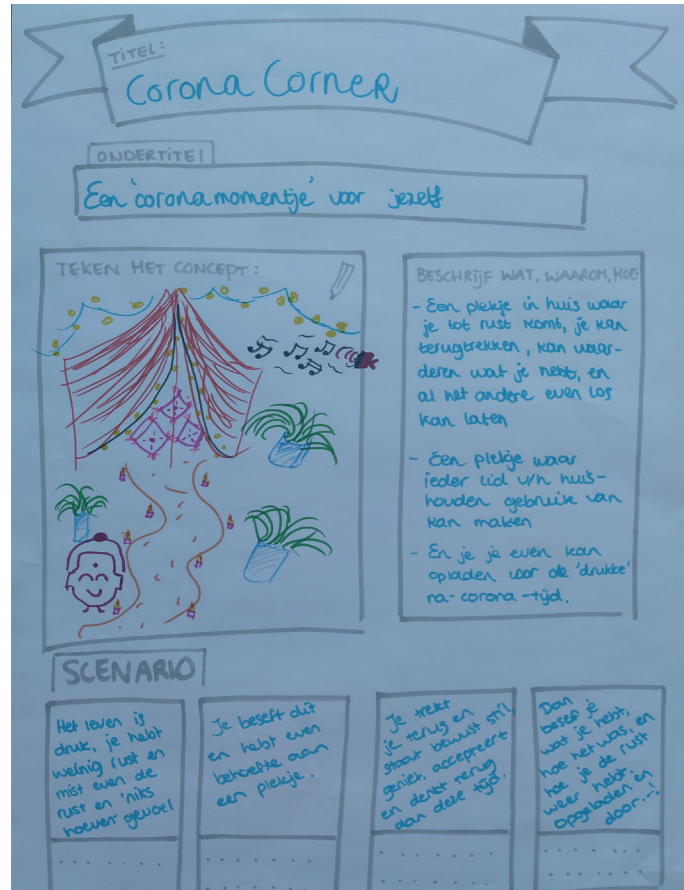 TITEL:
Corona Corner
ONDERTITEL
Een 'coronamomentje' voor jezelf
TEKEN HET CONCEPT:
BESCHRIJF WAT, WAAROM, HOE
- Een plekje in huis waar
je tot rust komt, je kan
terugtrekken, kan waar-
deren wat je hebt, en
al het andere even los
kan laten
- Een plekje waar
ieder lid v/h huis-
houden gebruik van
kan maken
- En je je even kan
opladen voor de 'drukke'
na-corona-tijd.
SCENARIO
Het leven is
druk, je hebt
weinig rust en
mist even de
rust en 'niks
hoeven' gevoel
Je beseft dit
en hebt even
behoefte aan
een plekje.
Je trekt
je terug en
staat bewust stil,
geniet, accepteert
en denkt terug
aan deze tijd.
Dan
besef je
wat je hebt,
hoe het was, en
hoe je de rust
weer hebt.
Opgeladen en
door...!